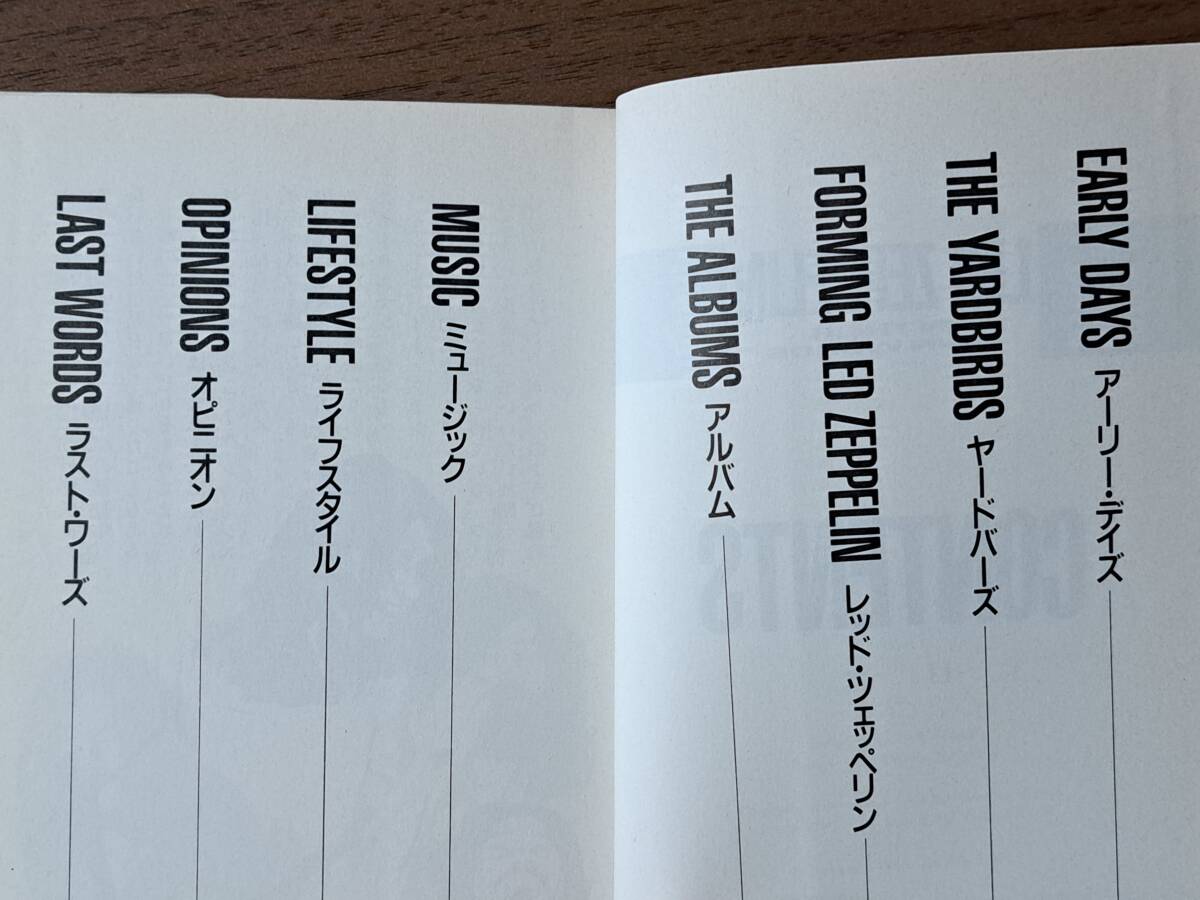 EARLY DAYS アーリー・デイズ
THE YARDBIRDS ヤードバーズ
FORMING LED ZEPPELIN レッド・ツェッペリン
THE ALBUMS アルバム
MUSIC ミュージック
LIFESTYLE ライフスタイル
OPINIONS オピニオン
LAST WORDS ラスト・ワーズ